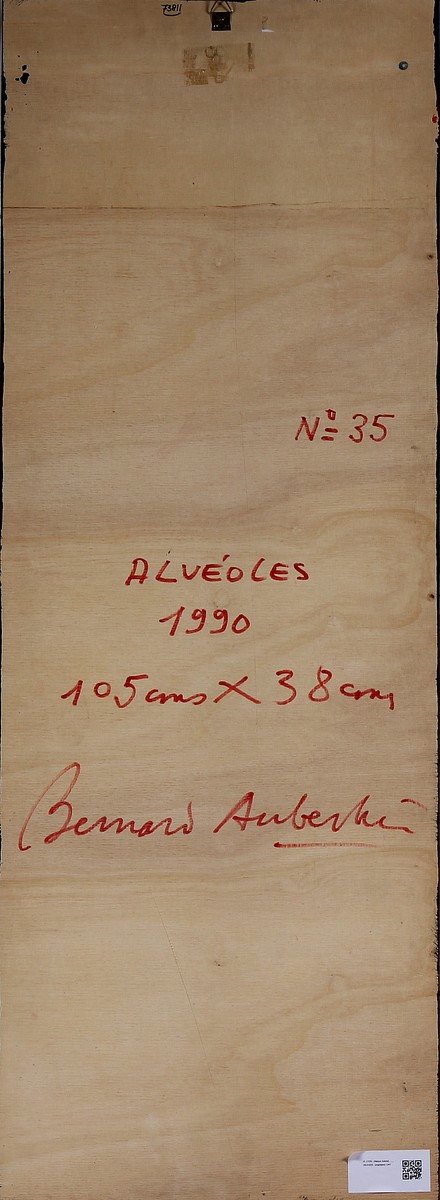 73811
Nº 35
ALVÉOLES
1990
105 cms X 38 cms
Bernard Aubertin